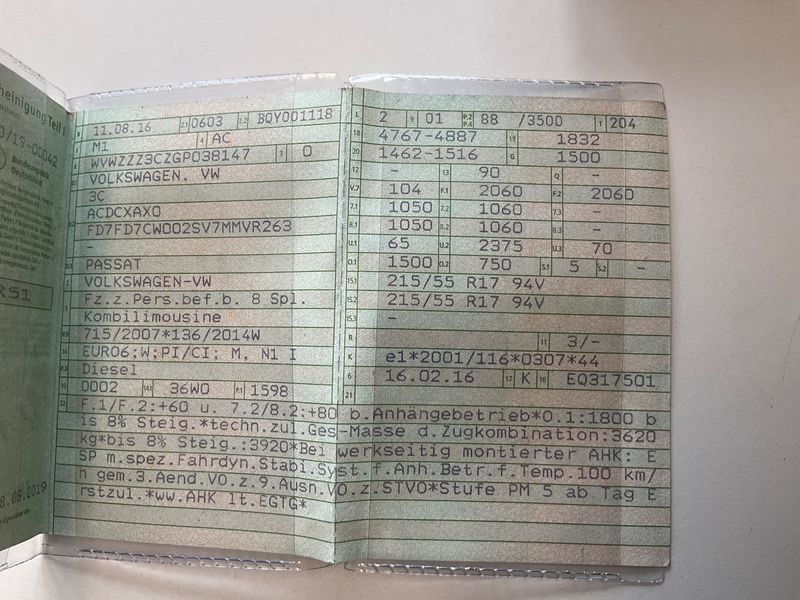 heinigung Teil I
/19-00042
Bundesrepublik
Deutschland
RS1
8.08.2019
B 11.08.16 2.1 0603 2.2 BQY001118
J M1 4 AC
E WVWZZZ3CZGP038147 3 0
VOLKSWAGEN, VW
3C
ACDCXAX0
FD7FD7CW002SV7MMVR263
–
PASSAT
2 VOLKSWAGEN-VW
5 Fz.z.Pers.bef.b. 8 Spl.
Kombilimousine
V.9 715/2007*136/2014W
14 EURO6;W;PI/CI; M, N1 I
P.3 Diesel
10 0002 14.1 36W0 P.1 1598
L 2 9 01 P.2 P.4 88 /3500 T 204
18 4767-4887 19 1832
20 1462-1516 G 1500
12 – 13 90 Q –
V.7 104 F.1 2060 F.2 2060
7.1 1050 7.2 1060 7.3 –
8.1 1050 8.2 1060 8.3 –
U.1 65 U.2 2375 U.3 70
O.1 1500 O.2 750 S.1 5 S.2 –
15.1 215/55 R17 94V
15.2 215/55 R17 94V
15.3 –
R 11 3/–
K e1*2001/116*0307*44
6 16.02.16 17 K 16 EQ317501
21
22 F.1/F.2:+60 u. 7.2/8.2:+80 b.Anhängebetrieb*O.1:1800 b
is 8% Steig.*techn.zul.Ges-Masse d.Zugkombination:3620
kg*bis 8% Steig.:3920*Bei werkseitig montierter AHK: E
SP m.spez.Fahrdyn.Stabi.Syst.f.Anh.Betr.f.Temp.100 km/
h gem.3.Aend.VO.z.9.Ausn.VO.z.STVO*Stufe PM 5 ab Tag E
rstzul.*ww.AHK lt.EGTG*